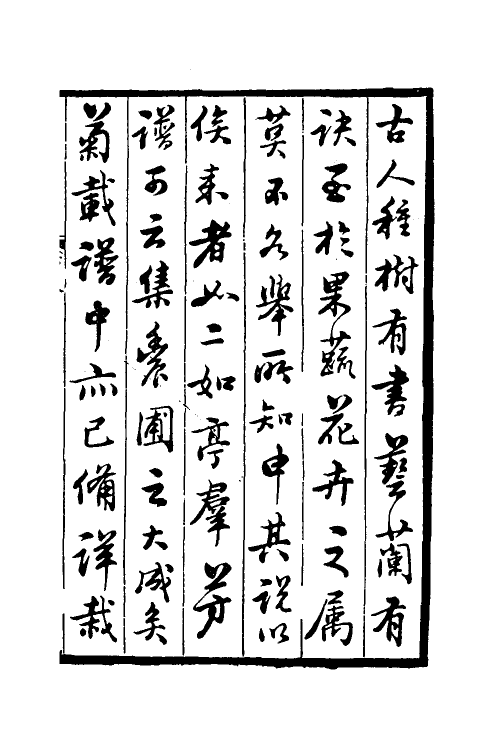 古人種樹有書藝蘭有
訣至於果蔬花卉之属
莫不各舉所知申其說以
俟来者如二如亭羣芳
譜可云集農圃之大成矣
菊載譜中亦已備詳栽